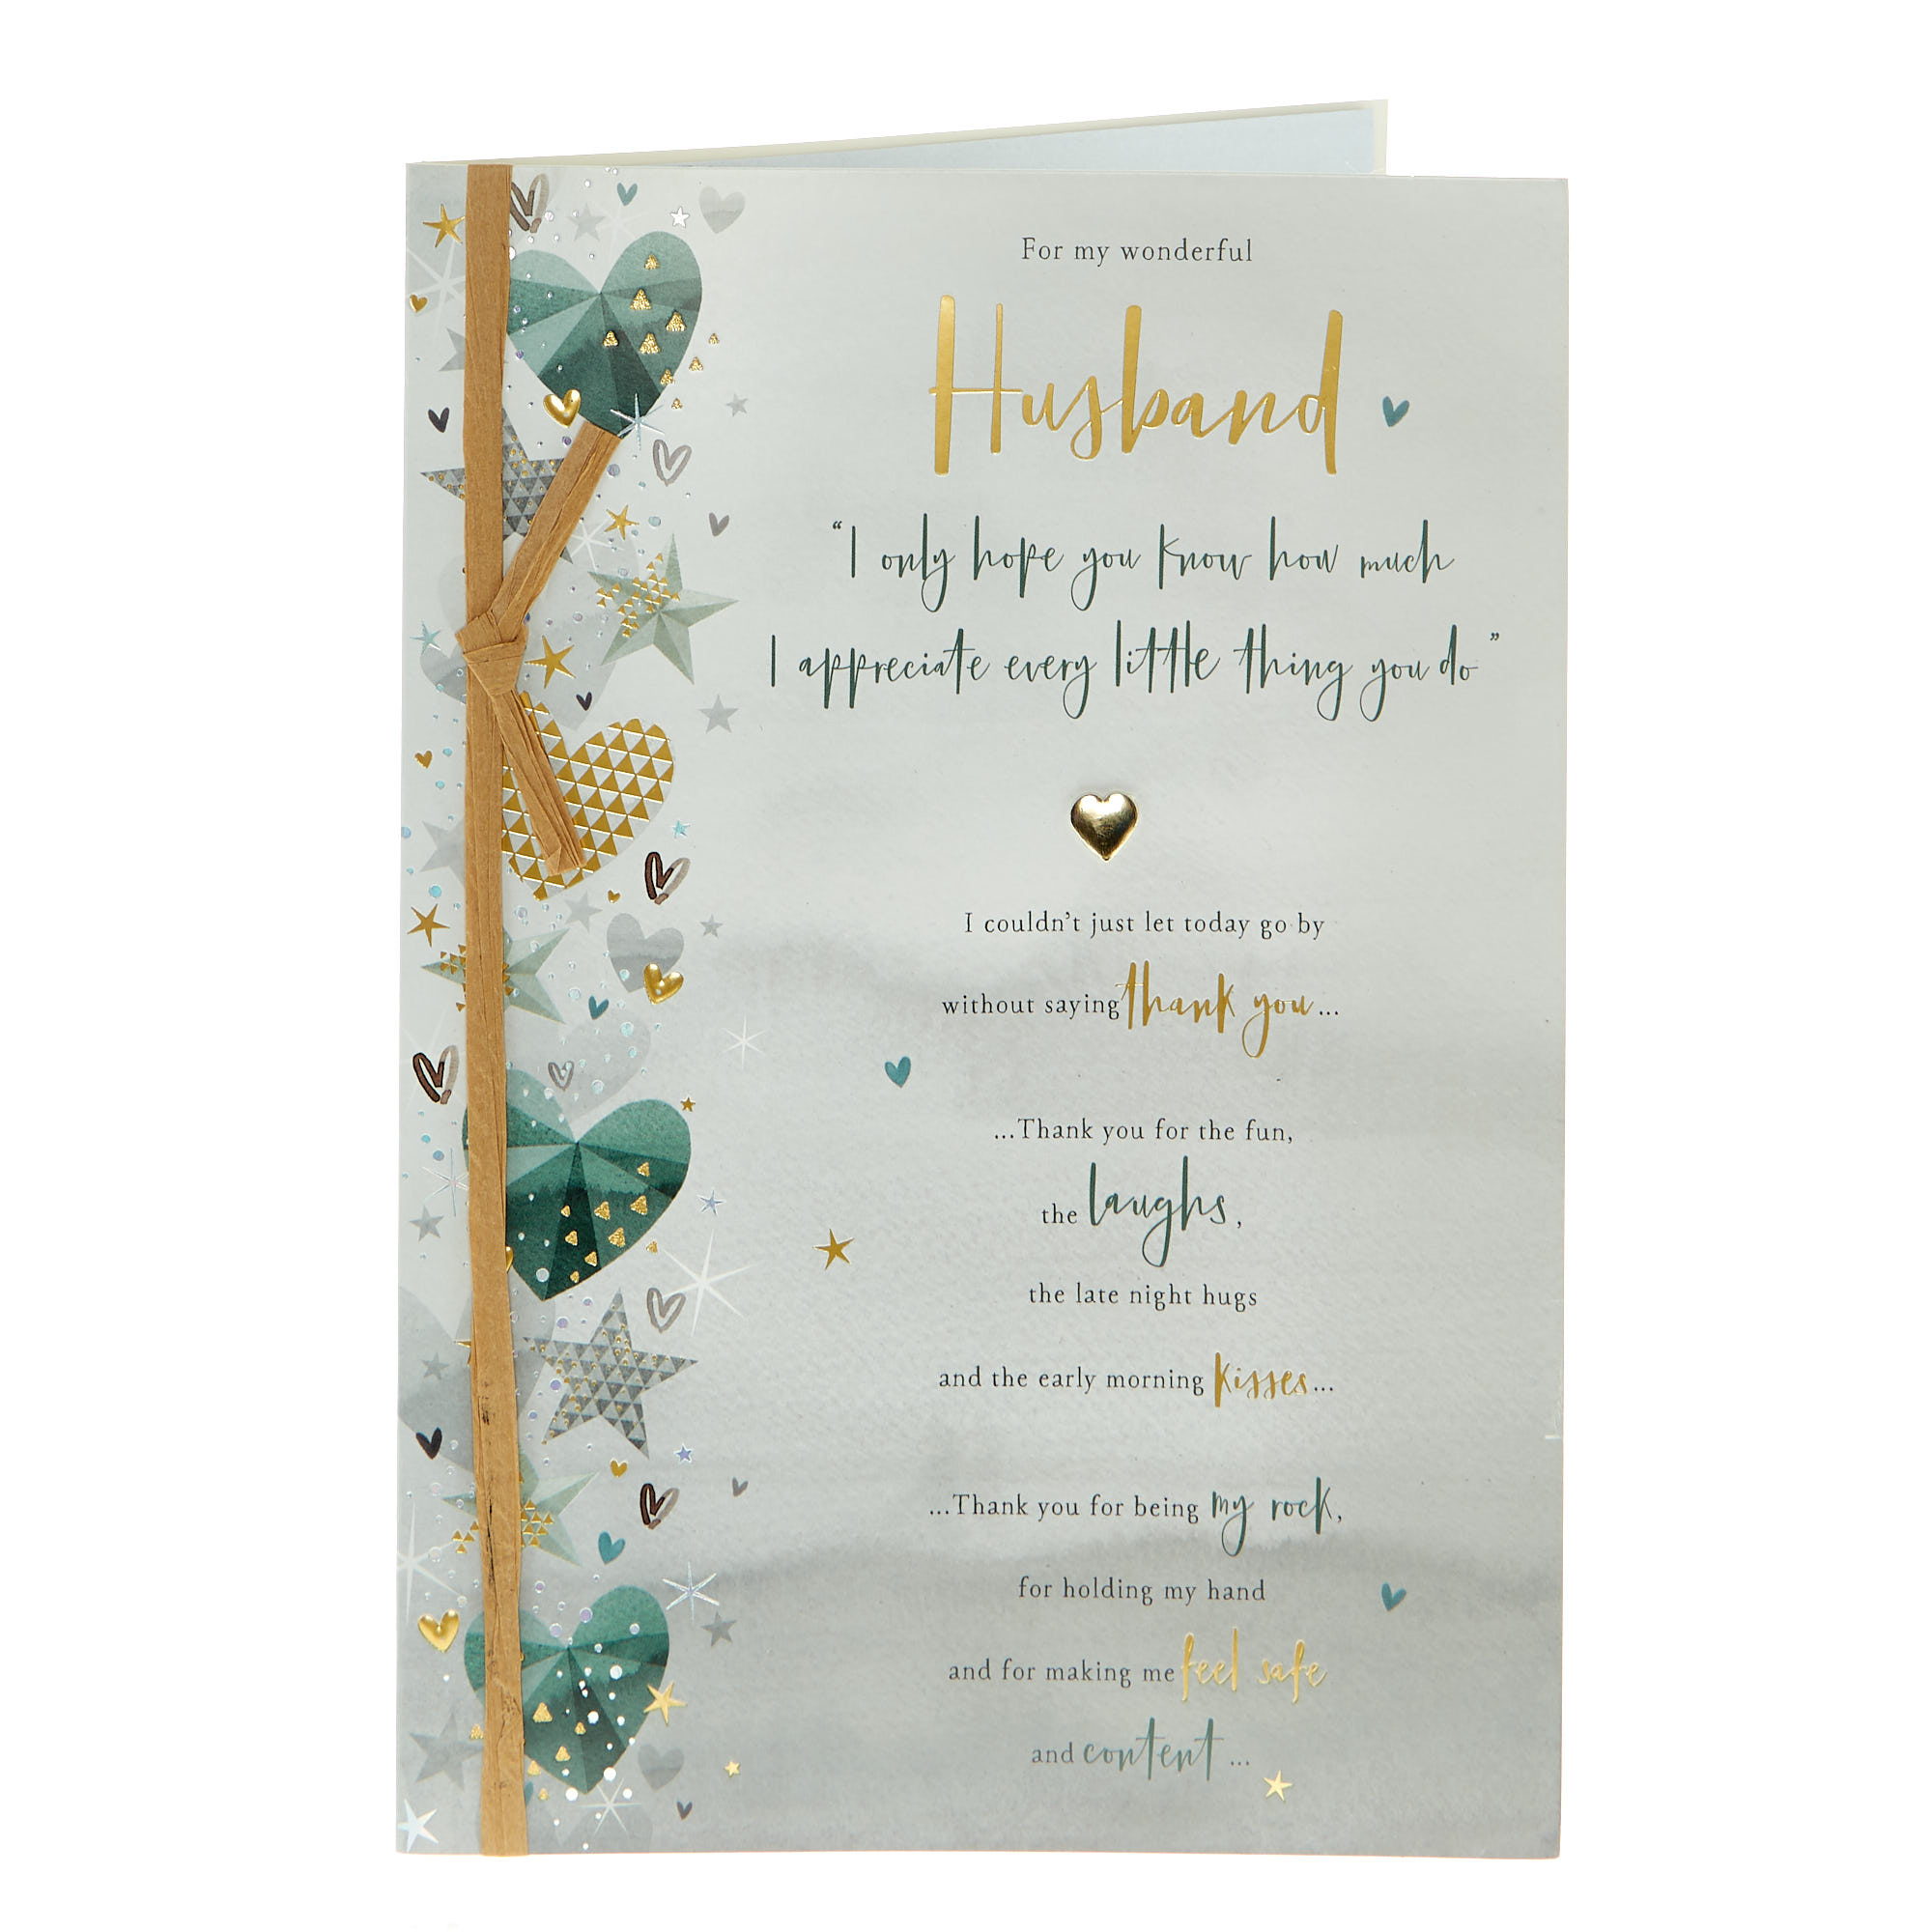 For my wonderful
Husband
“I only hope you know how much
I appreciate every little thing you do”
I couldn't just let today go by
without saying thank you...
...Thank you for the fun,
the laughs,
the late night hugs
and the early morning kisses...
...Thank you for being my rock,
for holding my hand
and for making me feel safe
and content...